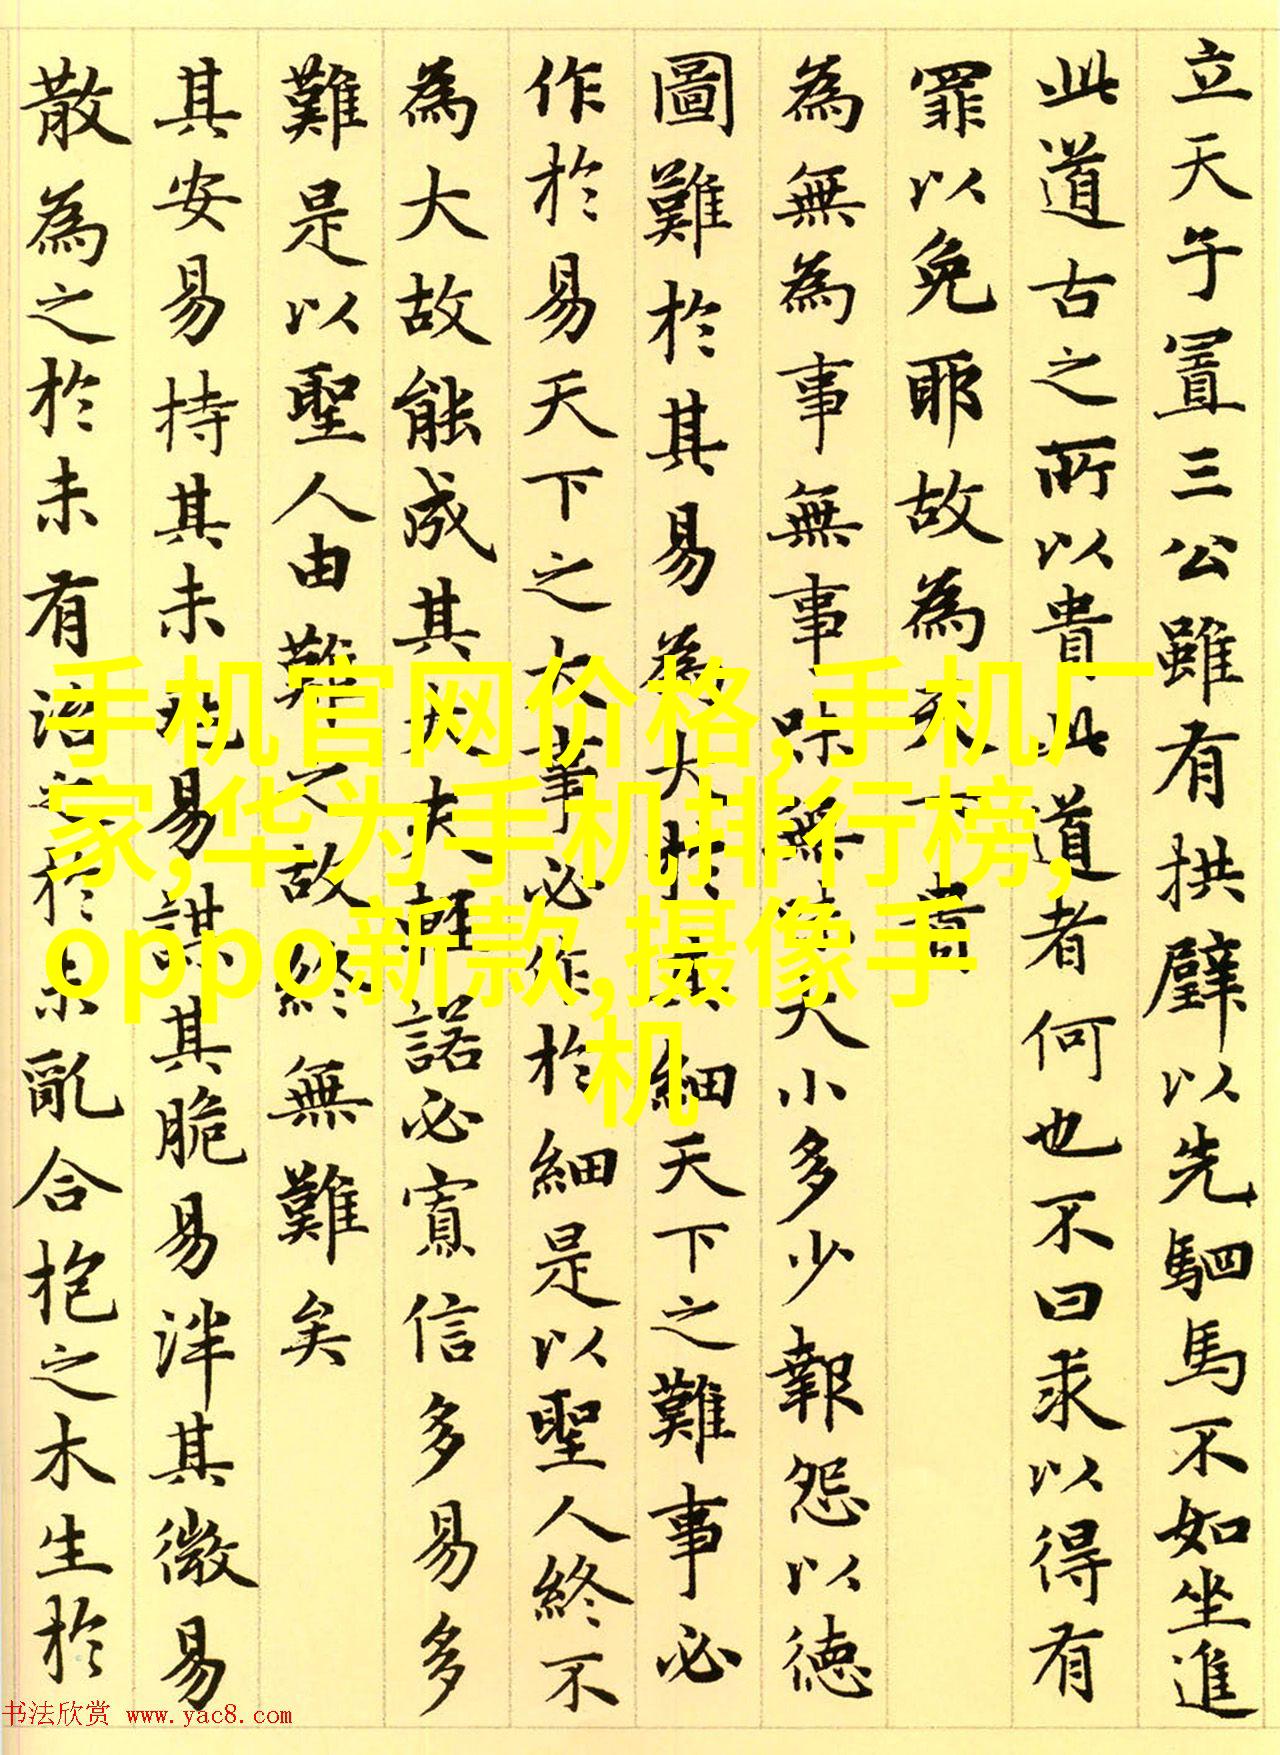 立天子置三公雖有拱璧以先駟馬不如坐進
此道古之所以貴此道者何也不曰求以得有
罪以免耶故為天下貴
為無為事無事味無味大小多少報怨以德
圖難於其易為大於其細天下之難事必
作於易天下之大事必作於細是以聖人終不
為大故能成其大夫輕諾必寡信多易多
難是以聖人由難之故終無難矣
其安易持其未兆易謀其脆易泮其微易
散為之於未有治之於未亂合抱之木生於
手机官网价格,手机厂
家,华为手机排行榜,
oppo新款,摄像手
机
书法欣赏 www.yac8.com